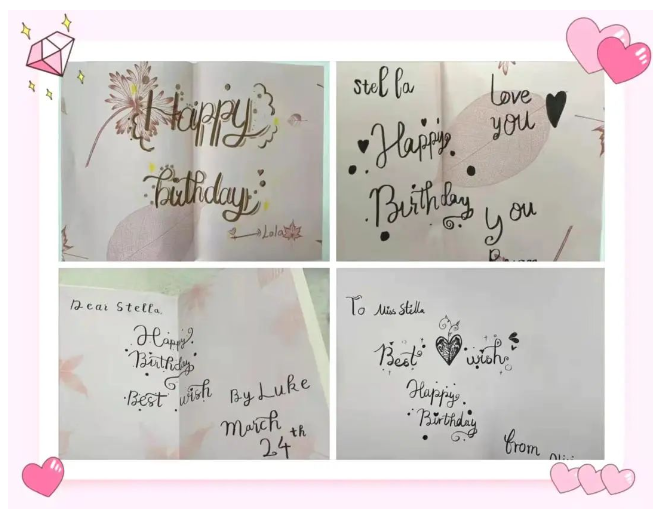 Happy
Birthday
Lala
Stella
Love
you
Happy
Birthday
you
Dear Stella
Happy
Birthday
Best wish
By Luke
March
24th
To Miss Stella
Best wish
Happy
Birthday
from